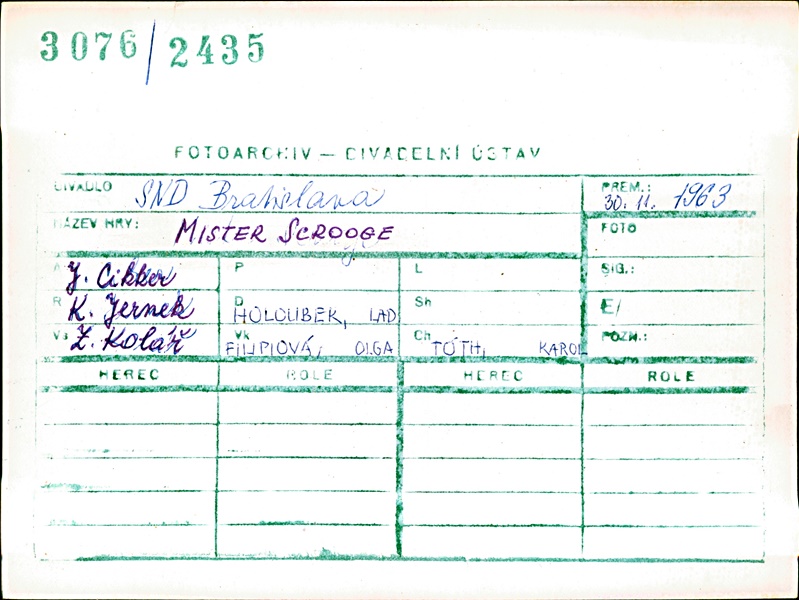 3076/2435
FOTOARCHIV — DIVADELNÍ ÚSTAV
DIVADLO SND Bratislava PREM.: 30. 11. 1963
NÁZEV HRY: MISTER SCROOGE FOTO
A J. Cikker P L SIG.:
R K. Jernek D HOLOUBEK, LAD. Sh E/
Vs Z. Kolář Vk FILIPIOVÁ, OLGA Ch TÓTH, KAROL POZN.:
HEREC ROLE HEREC ROLE